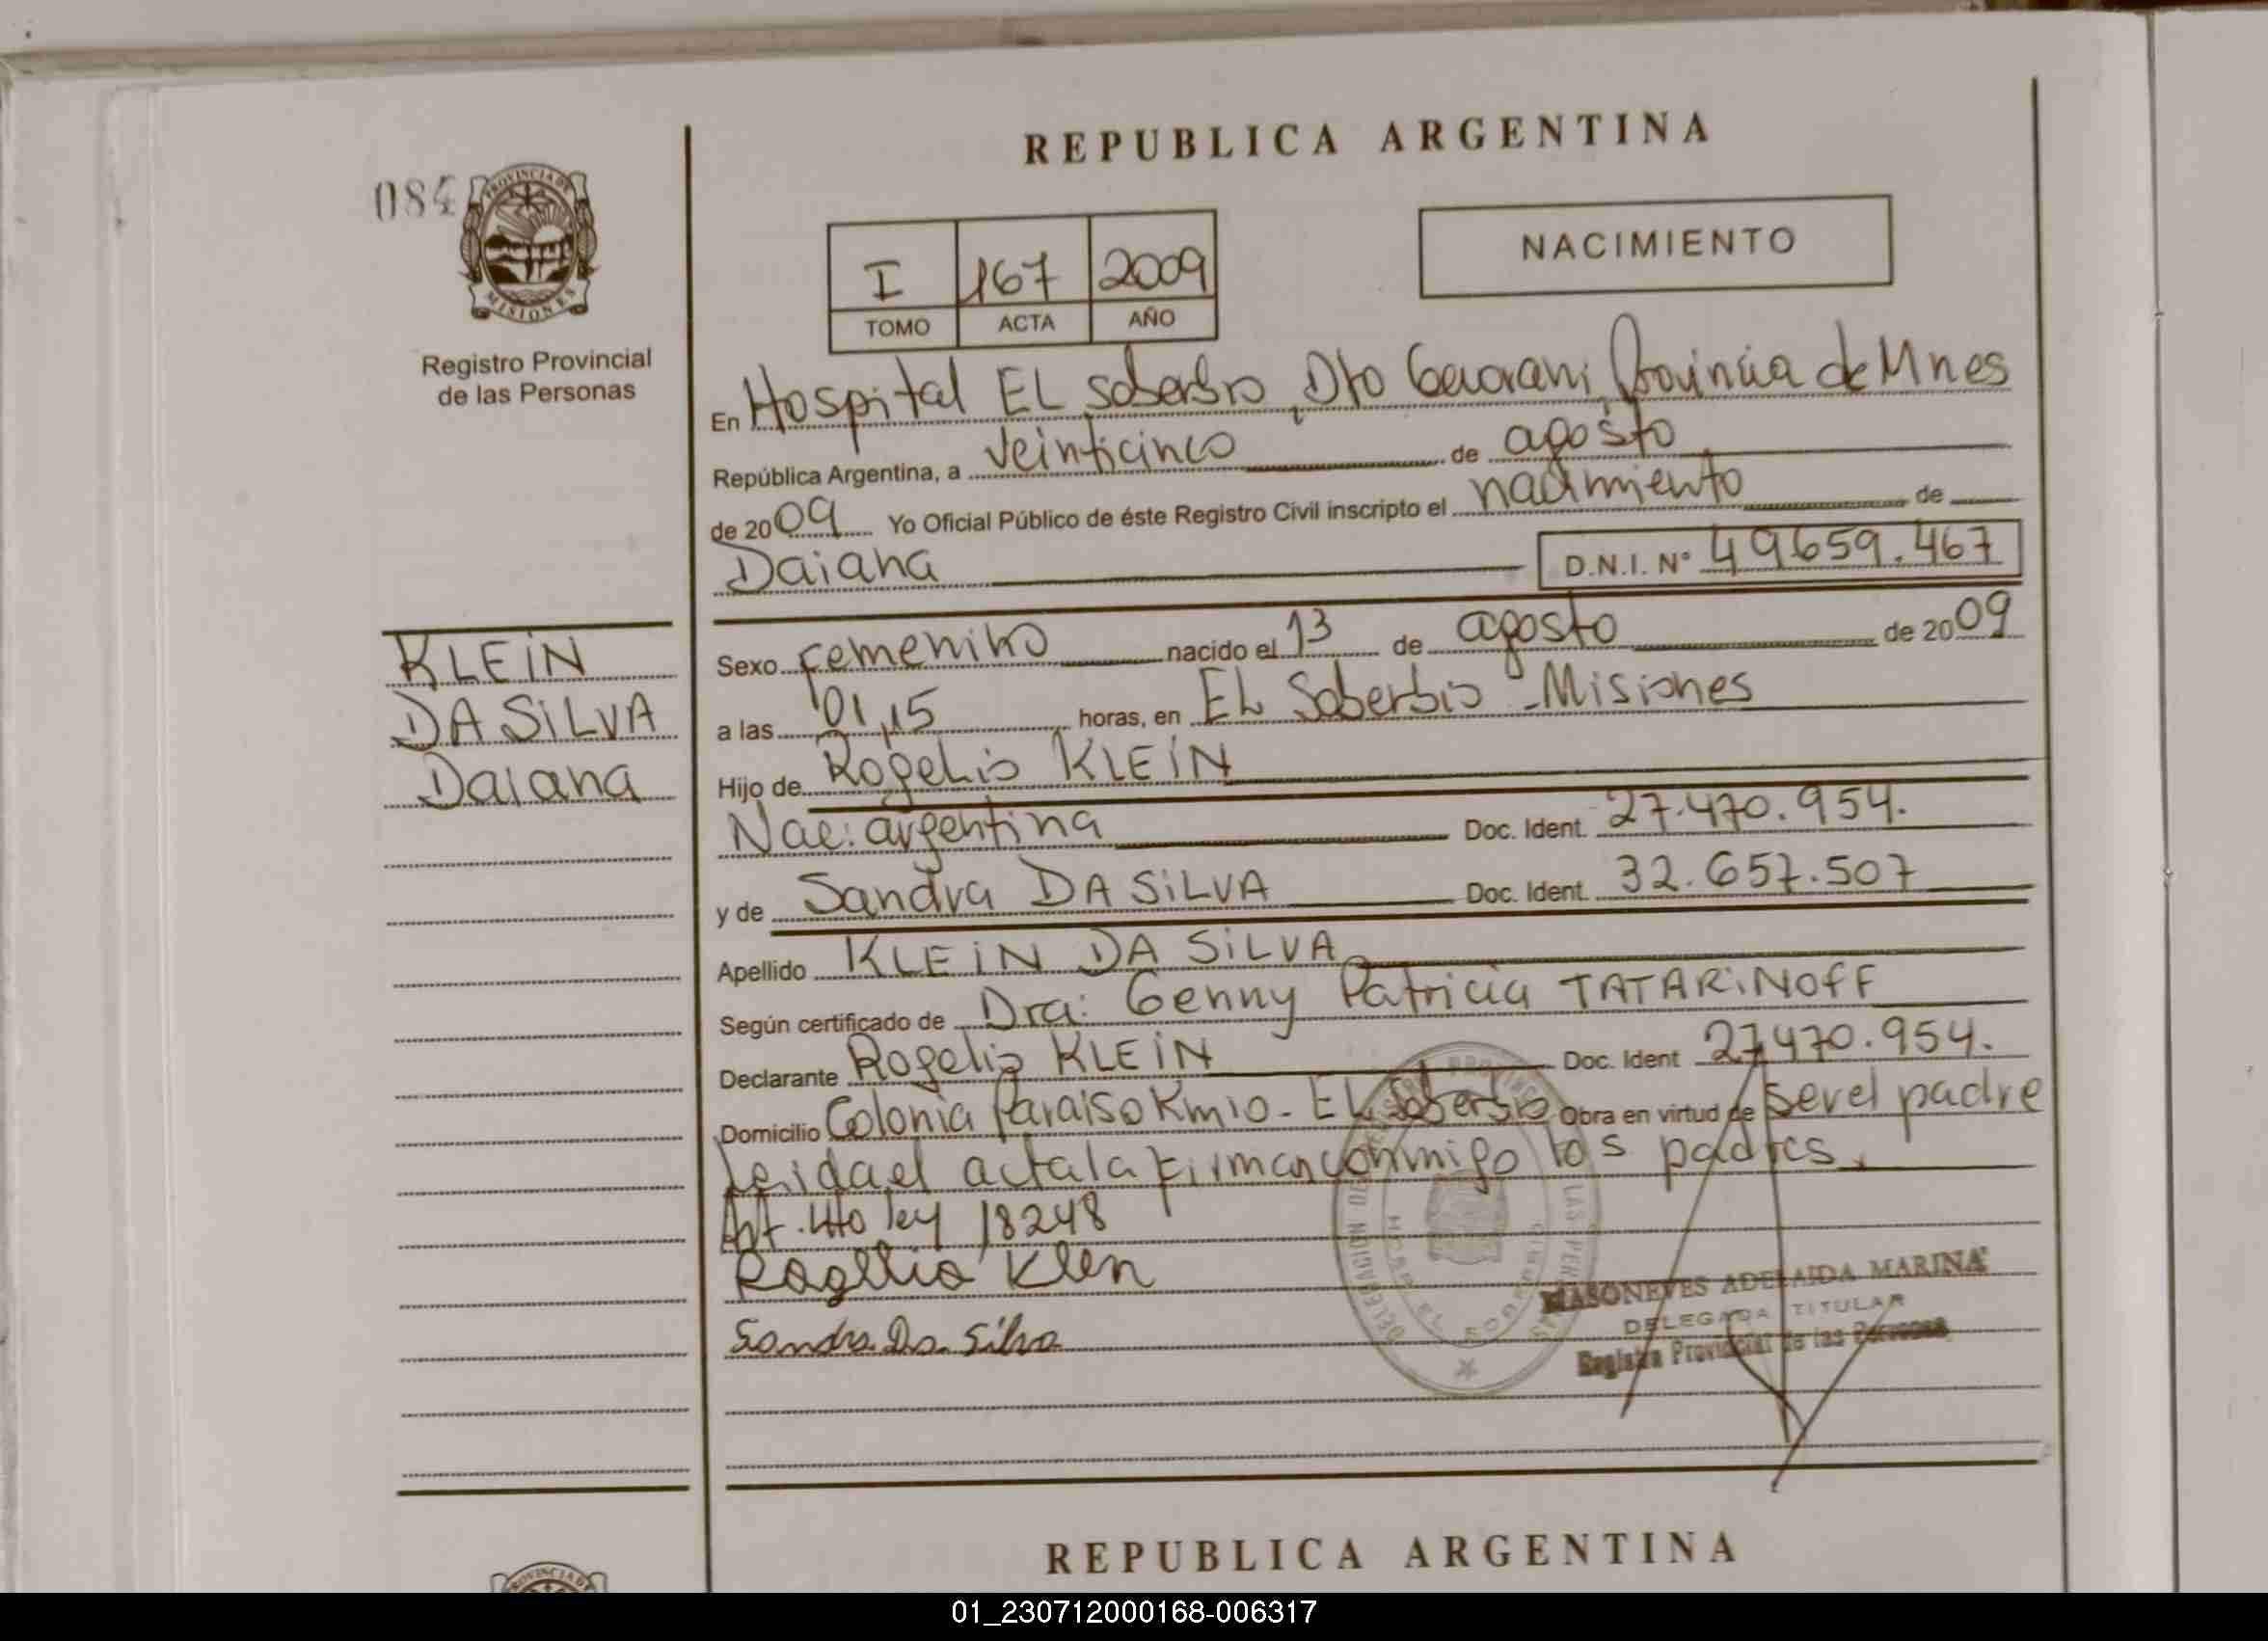 REPUBLICA ARGENTINA
084
PROVINCIA DE
MISIONES
Registro Provincial
de las Personas
I 167 2009
TOMO ACTA AÑO
NACIMIENTO
En Hospital EL Soberbio, Dto Guarani, Provincia de Mnes
República Argentina, a veinticinco de agosto
de 2009 Yo Oficial Público de éste Registro Civil inscripto el nacimiento de
Daiana D.N.I. Nº 49659.467
KLEIN
DA SILVA
Daiana
Sexo Femenino nacido el 13 de agosto de 2009
a las 01,15 horas, en EL Soberbio - Misiones
Hijo de Rogelio KLEIN
Nac: argentina Doc. Ident. 27.470.954.
y de Sandra DA SILVA Doc. Ident. 32.657.507
Apellido KLEIN DA SILVA
Según certificado de Dra: Genny Patricia TATARINOFF
Declarante Rogelio KLEIN Doc. Ident 27470.954.
Domicilio Colonia Paraiso Km10 - EL Soberbio Obra en virtud de ser el padre
Leida el acta la firman conmigo los padres.
Art. 4to ley 18248
Rogelio Klen
Sandra Da Silva
MASONEVES ADELAIDA MARINA
DELEGADA TITULAR
Registro Provincial de las Personas
REPUBLICA ARGENTINA
01_230712000168-006317